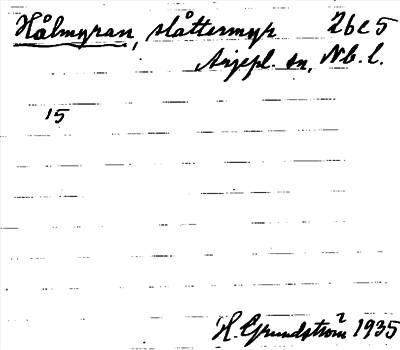 Hålmyran, slåttermyr 26c5
Arjepl. sn, Nb. l.
15
H. Grundström 1935